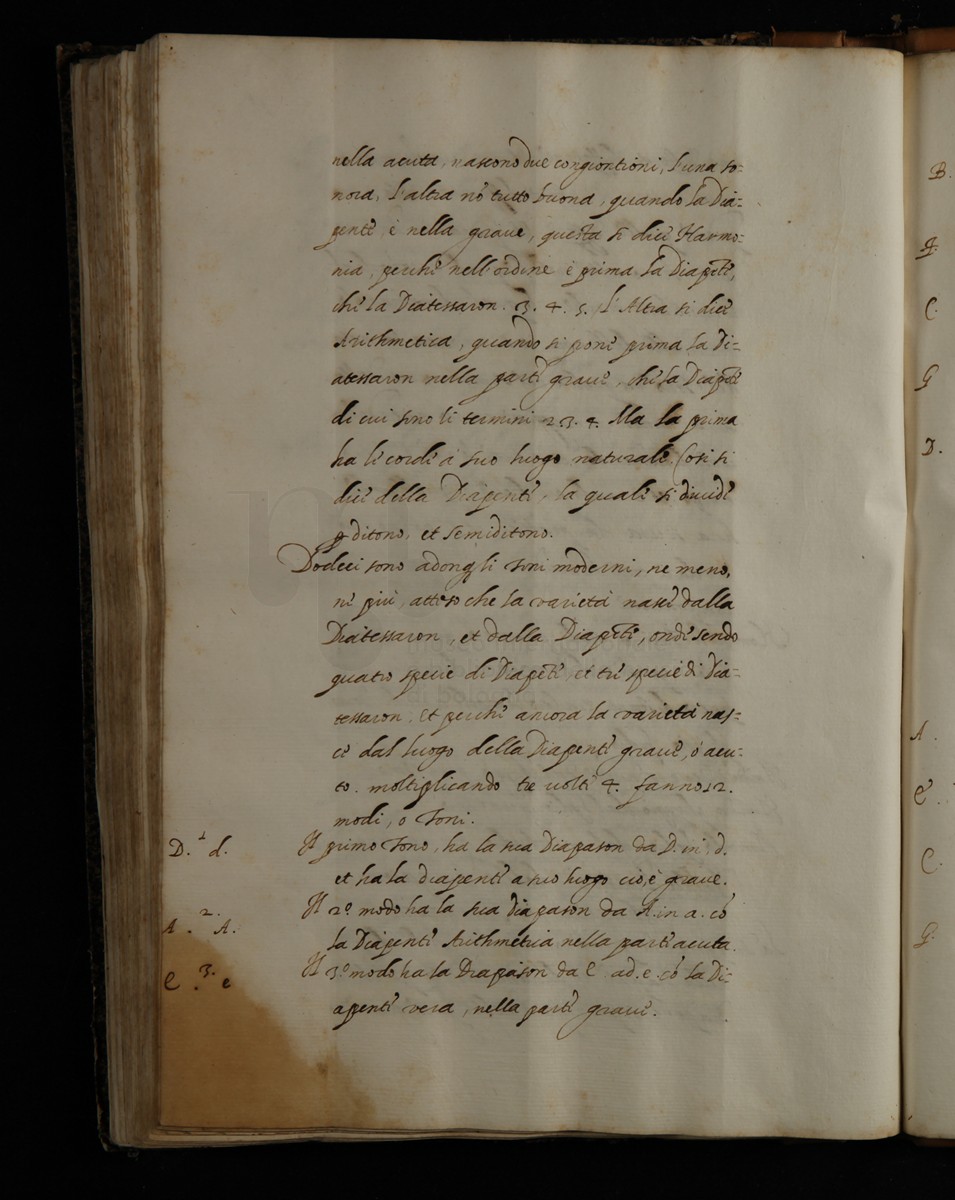 nella acuta, nascono due congiontioni, l'una so=
nora, l'altra nō tutto buona, quando la Dia=
pente, è nella graue, questa si dice Harmo=
nia, perche nell'ordine è prima la Diapēte,
che la Diatessaron. 3. 4. 5. L'Altra si dice
Arithmetica, quando si pone prima la Di=
atessaron nella parte graue, che la Diapēte
di cui sono li termini 2 3. 4. Ma la prima
ha le corde à suo luogo naturale. Cosi si
dice della Diapente, la quale si diuide
ꝑ ditono, et semiditono.
Dodeci sono adonq̨ li Toni moderni, ne meno,
ne più, atteso che la varietà nasce dalla
Diatessaron, et dalla Diapēte, onde sendo
quatro specie di Diapēte, et tre specie di Dia=
tessaron, et perche ancora la varietà nas=
ce dal luogo della Diapente graue, ò acu=
to. moltiplicando tre uolte 4. fanno 12.
modi, o Toni.
D. 1 d. Il primo Tono, ha la sua Diapason da D. in d.
et ha la diapente a suo luogo cio, è graue.
A. 2. A. Il 2º modo ha la sua diapason da A. in a. cō
la Diapente Arithmetica nella parte acuta.
E. 3. e Il 3º modo ha la Diapason da E. ad. e. cō la Di=
apente vera, nella parte graue.
B.
C.
G
D.
A.
C.
G.